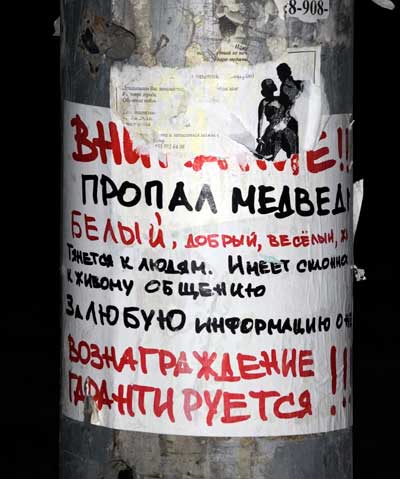 8-908-
ВНИМАНИЕ!!!
ПРОПАЛ МЕДВЕДЬ
БЕЛЫЙ, ДОБРЫЙ, ВЕСЁЛЫЙ,
ТЯНЕТСЯ К ЛЮДЯМ. ИМЕЕТ СКЛОННО
К ЖИВОМУ ОБЩЕНИЮ
ЗА ЛЮБУЮ ИНФОРМАЦИЮ О
ВОЗНАГРАЖДЕНИЕ
ГАРАНТИРУЕТСЯ !!!